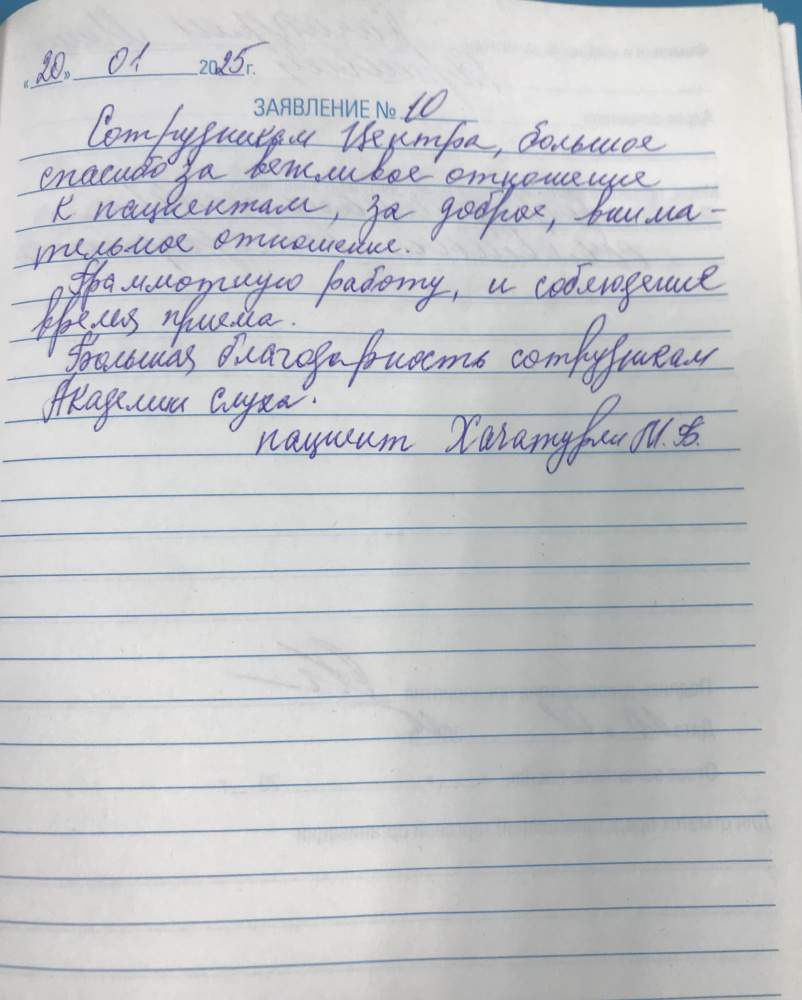 «20» 01 2025г.
ЗАЯВЛЕНИЕ № 10
Сотрудникам Центра, большое
спасибо за вежливое отношение
к пациентам, за доброе, внима-
тельное отношение.
Граммотную работу, и соблюдение
время приема.
Большая благодарность сотрудникам
Академии слуха.
пациент Хачатурян